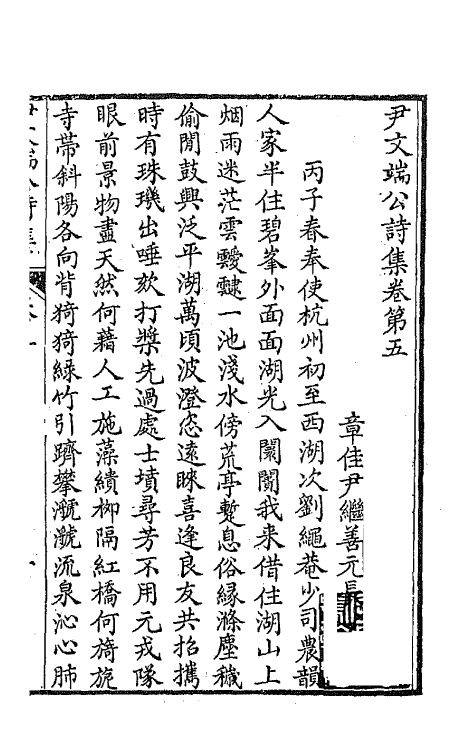 尹文端公詩集卷第五
章佳尹繼善元長
丙子春奉使杭州初至西湖次劉繩菴少司農韻
人家半住碧峯外面面湖光入闌闠我来借住湖山上
烟雨迷茫雲靉靆一池淺水傍荒亭蹔息俗緣滌塵穢
偷閒鼓興泛平湖萬頃波澄恣遠睞喜逢良友共招攜
時有珠璣出唾欬打槳先過處士墳尋芳不用元戎隊
眼前景物盡天然何藉人工施藻繢栁隔紅橋何旖旎
寺帶斜陽各向背猗猗緑竹引躋攀㶁㶁流泉沁心肺